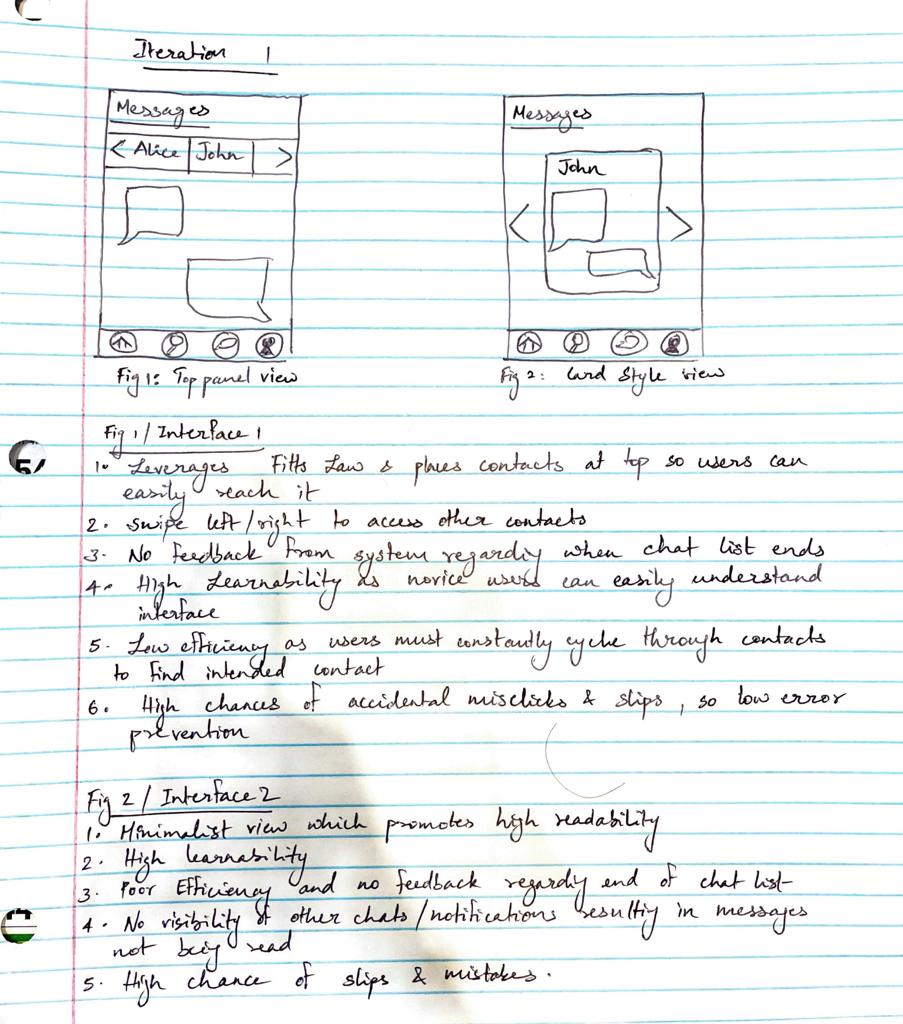 Iteration 1
Messages
< Alice John >
Fig 1: Top panel view
Messages
John
< >
Fig 2: Card Style view
Fig 1 / Interface 1
1. Leverages Fitts Law & places contacts at top so users can
easily reach it
2. Swipe left/right to access other contacts
3. No feedback from system regardiy when chat list ends
4. High Learnability as novice users can easily understand
interface
5. Low efficiency as users must constantly cycle through contacts
to find intended contact
6. High chances of accidental misclicks & slips, so low error
prevention
Fig 2 / Interface 2
1. Minimalist view which promotes high readability
2. High learnability
3. Poor Efficiency and no feedback regardiy end of chat list
4. No visibility of other chats/notifications resultiy in messages
not beiy read
5. High chance of slips & mistakes.